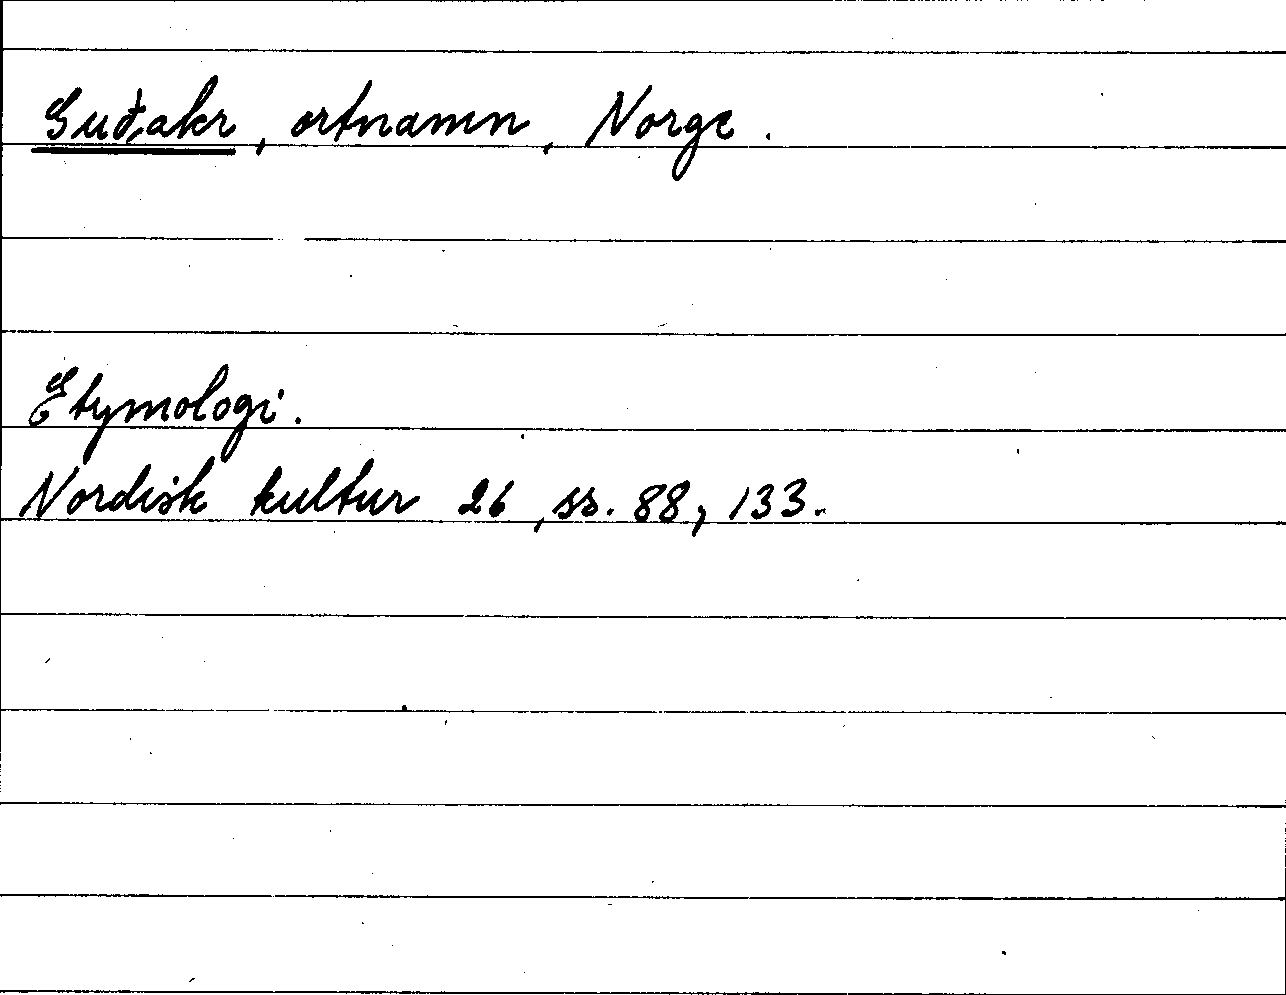 Guðakr, ortnamn, Norge.
Etymologi.
Nordisk kultur 26, ss. 88, 133.